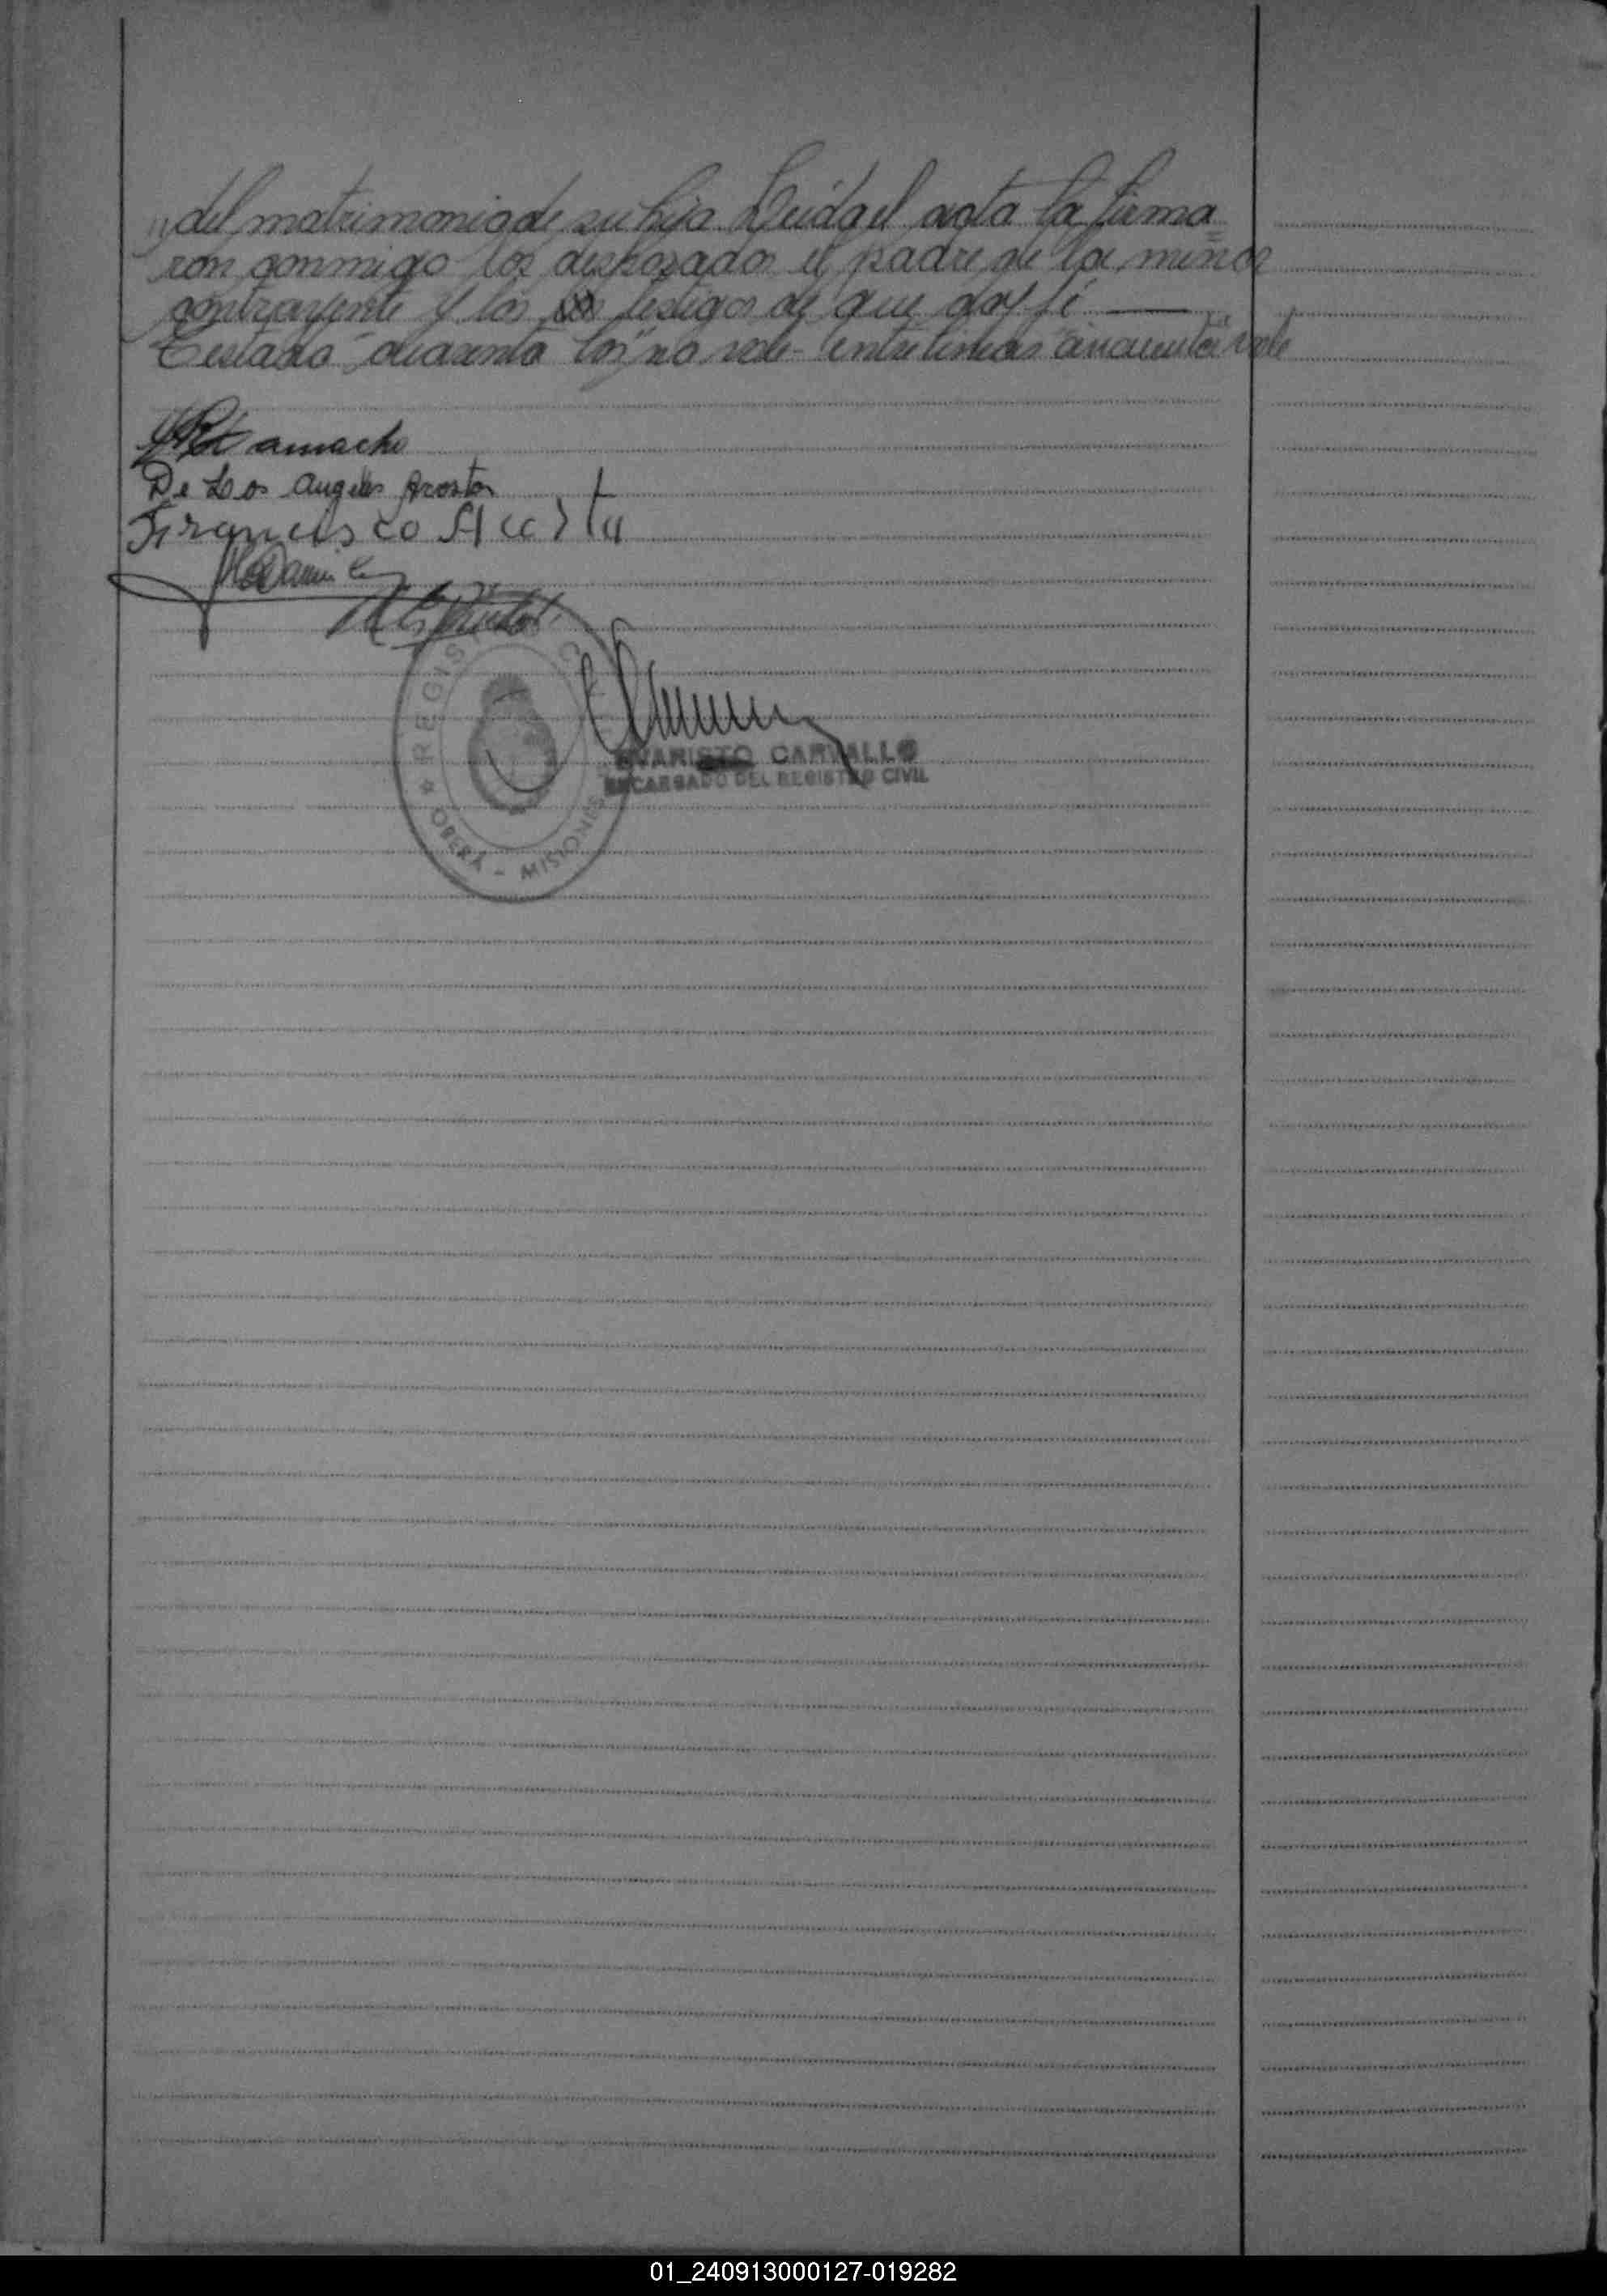 del matrimonio de su hija Leída el acta la firma=
ron conmigo los desposados el padre de la menor
contrayente y los testigos de que doy fé
Testado "cuarenta" "los" no vale - entre lineas "cincuenta" vale
amacho
De Los Angeles Acosta
Francisco Acosta
REGISTRO CIVIL
EVARISTO CARVALLO
ENCARGADO DEL REGISTRO CIVIL
OBERÁ - MISIONES
01_240913000127-019282